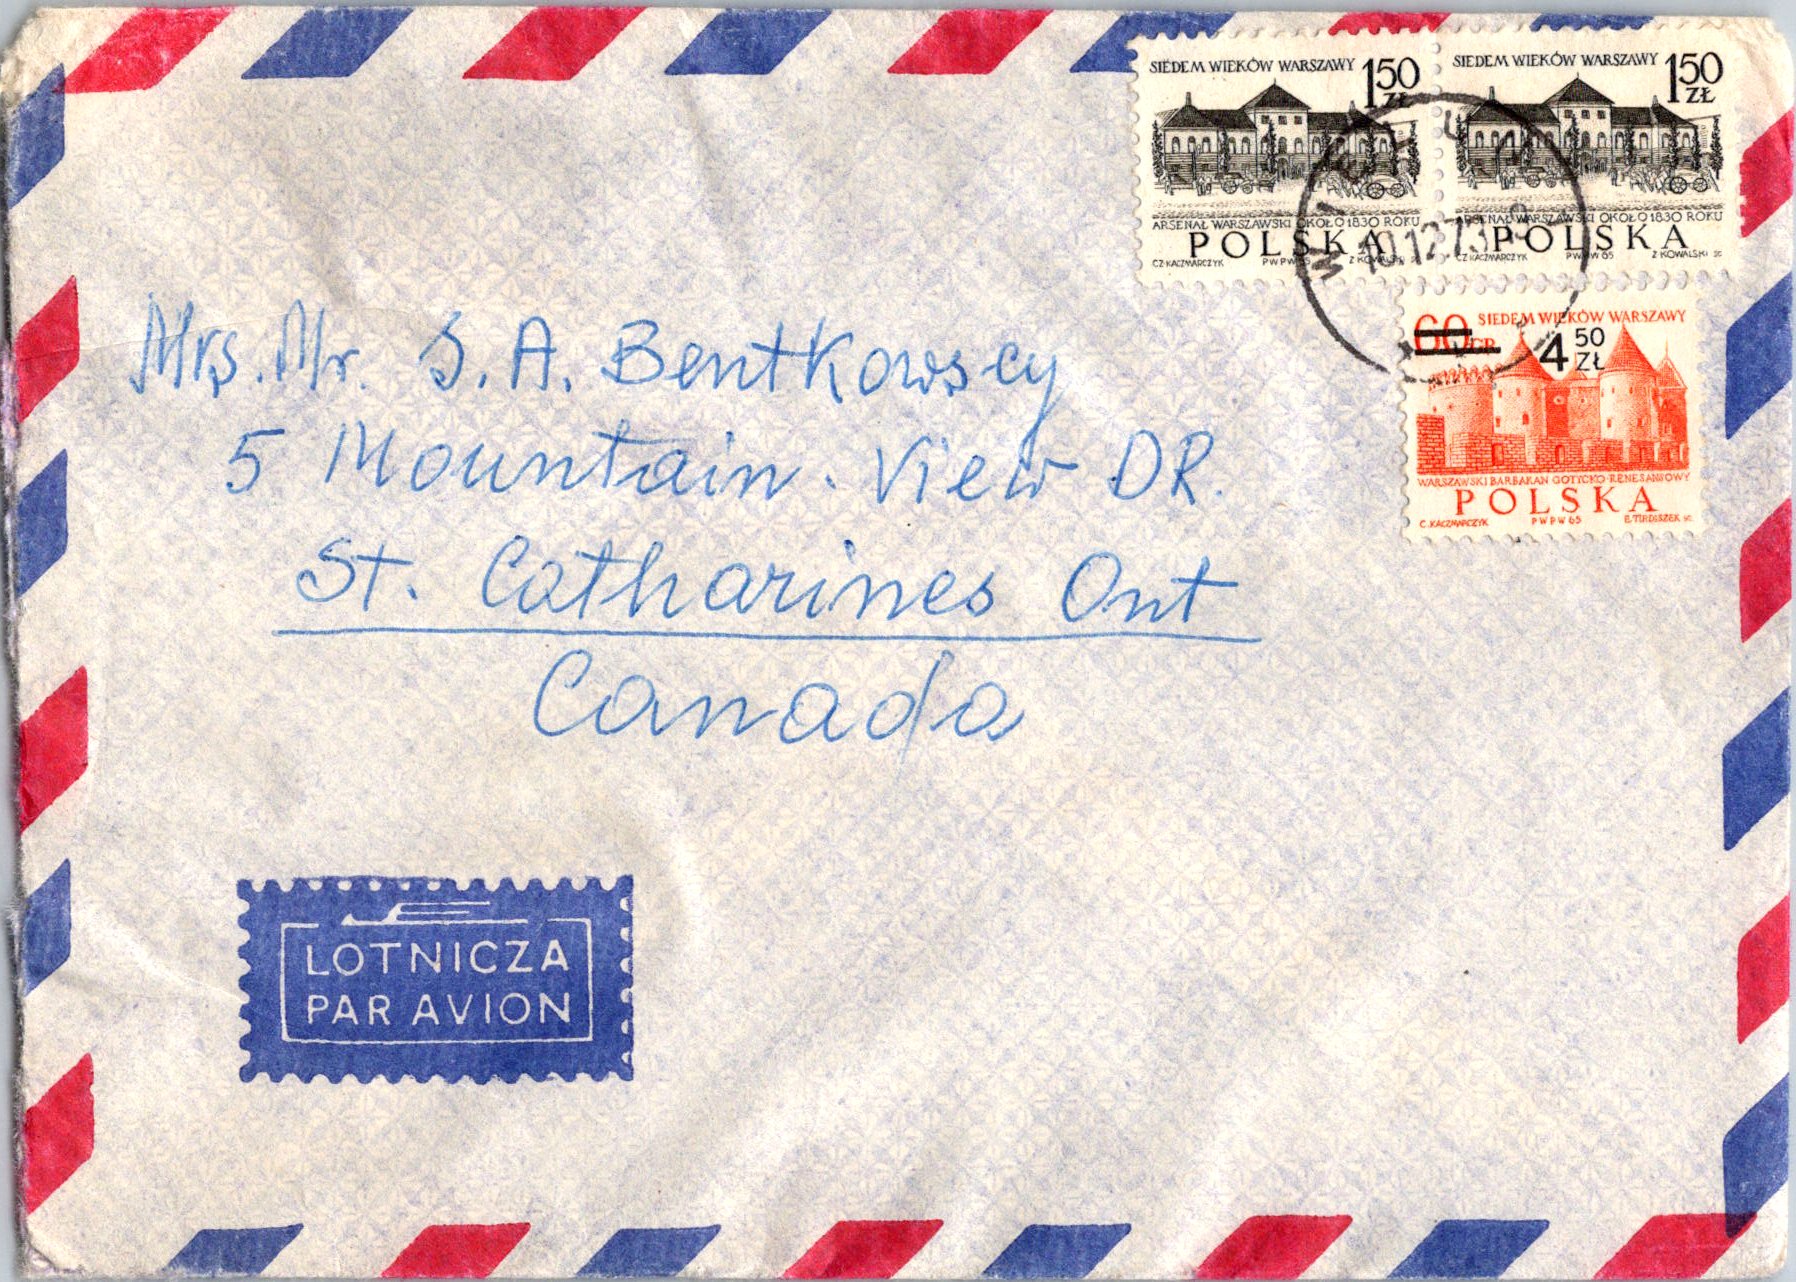 SIEDEM WIEKÓW WARSZAWY 1 50 ZŁ
ARSENAŁ WARSZAWSKI OKOŁO 1830 ROKU
POLSKA
CZ. KACZMARCZYK PWPW 65 Z. KOWALSKI SC
SIEDEM WIEKÓW WARSZAWY 1 50 ZŁ
ARSENAŁ WARSZAWSKI OKOŁO 1830 ROKU
POLSKA
CZ. KACZMARCZYK PWPW 65 Z. KOWALSKI SC
10.12.73
60 GR SIEDEM WIEKÓW WARSZAWY
4 50 ZŁ
WARSZAWSKI BARBAKAN GOTYCKO-RENESANSOWY
POLSKA
C. KACZMARCZYK PWPW 65 E. TIRDISZEK SC
Mrs. Mr. S. A. Bentkowscy
5 Mountain. View DR.
St. Catharines Ont
Canada
LOTNICZA
PAR AVION